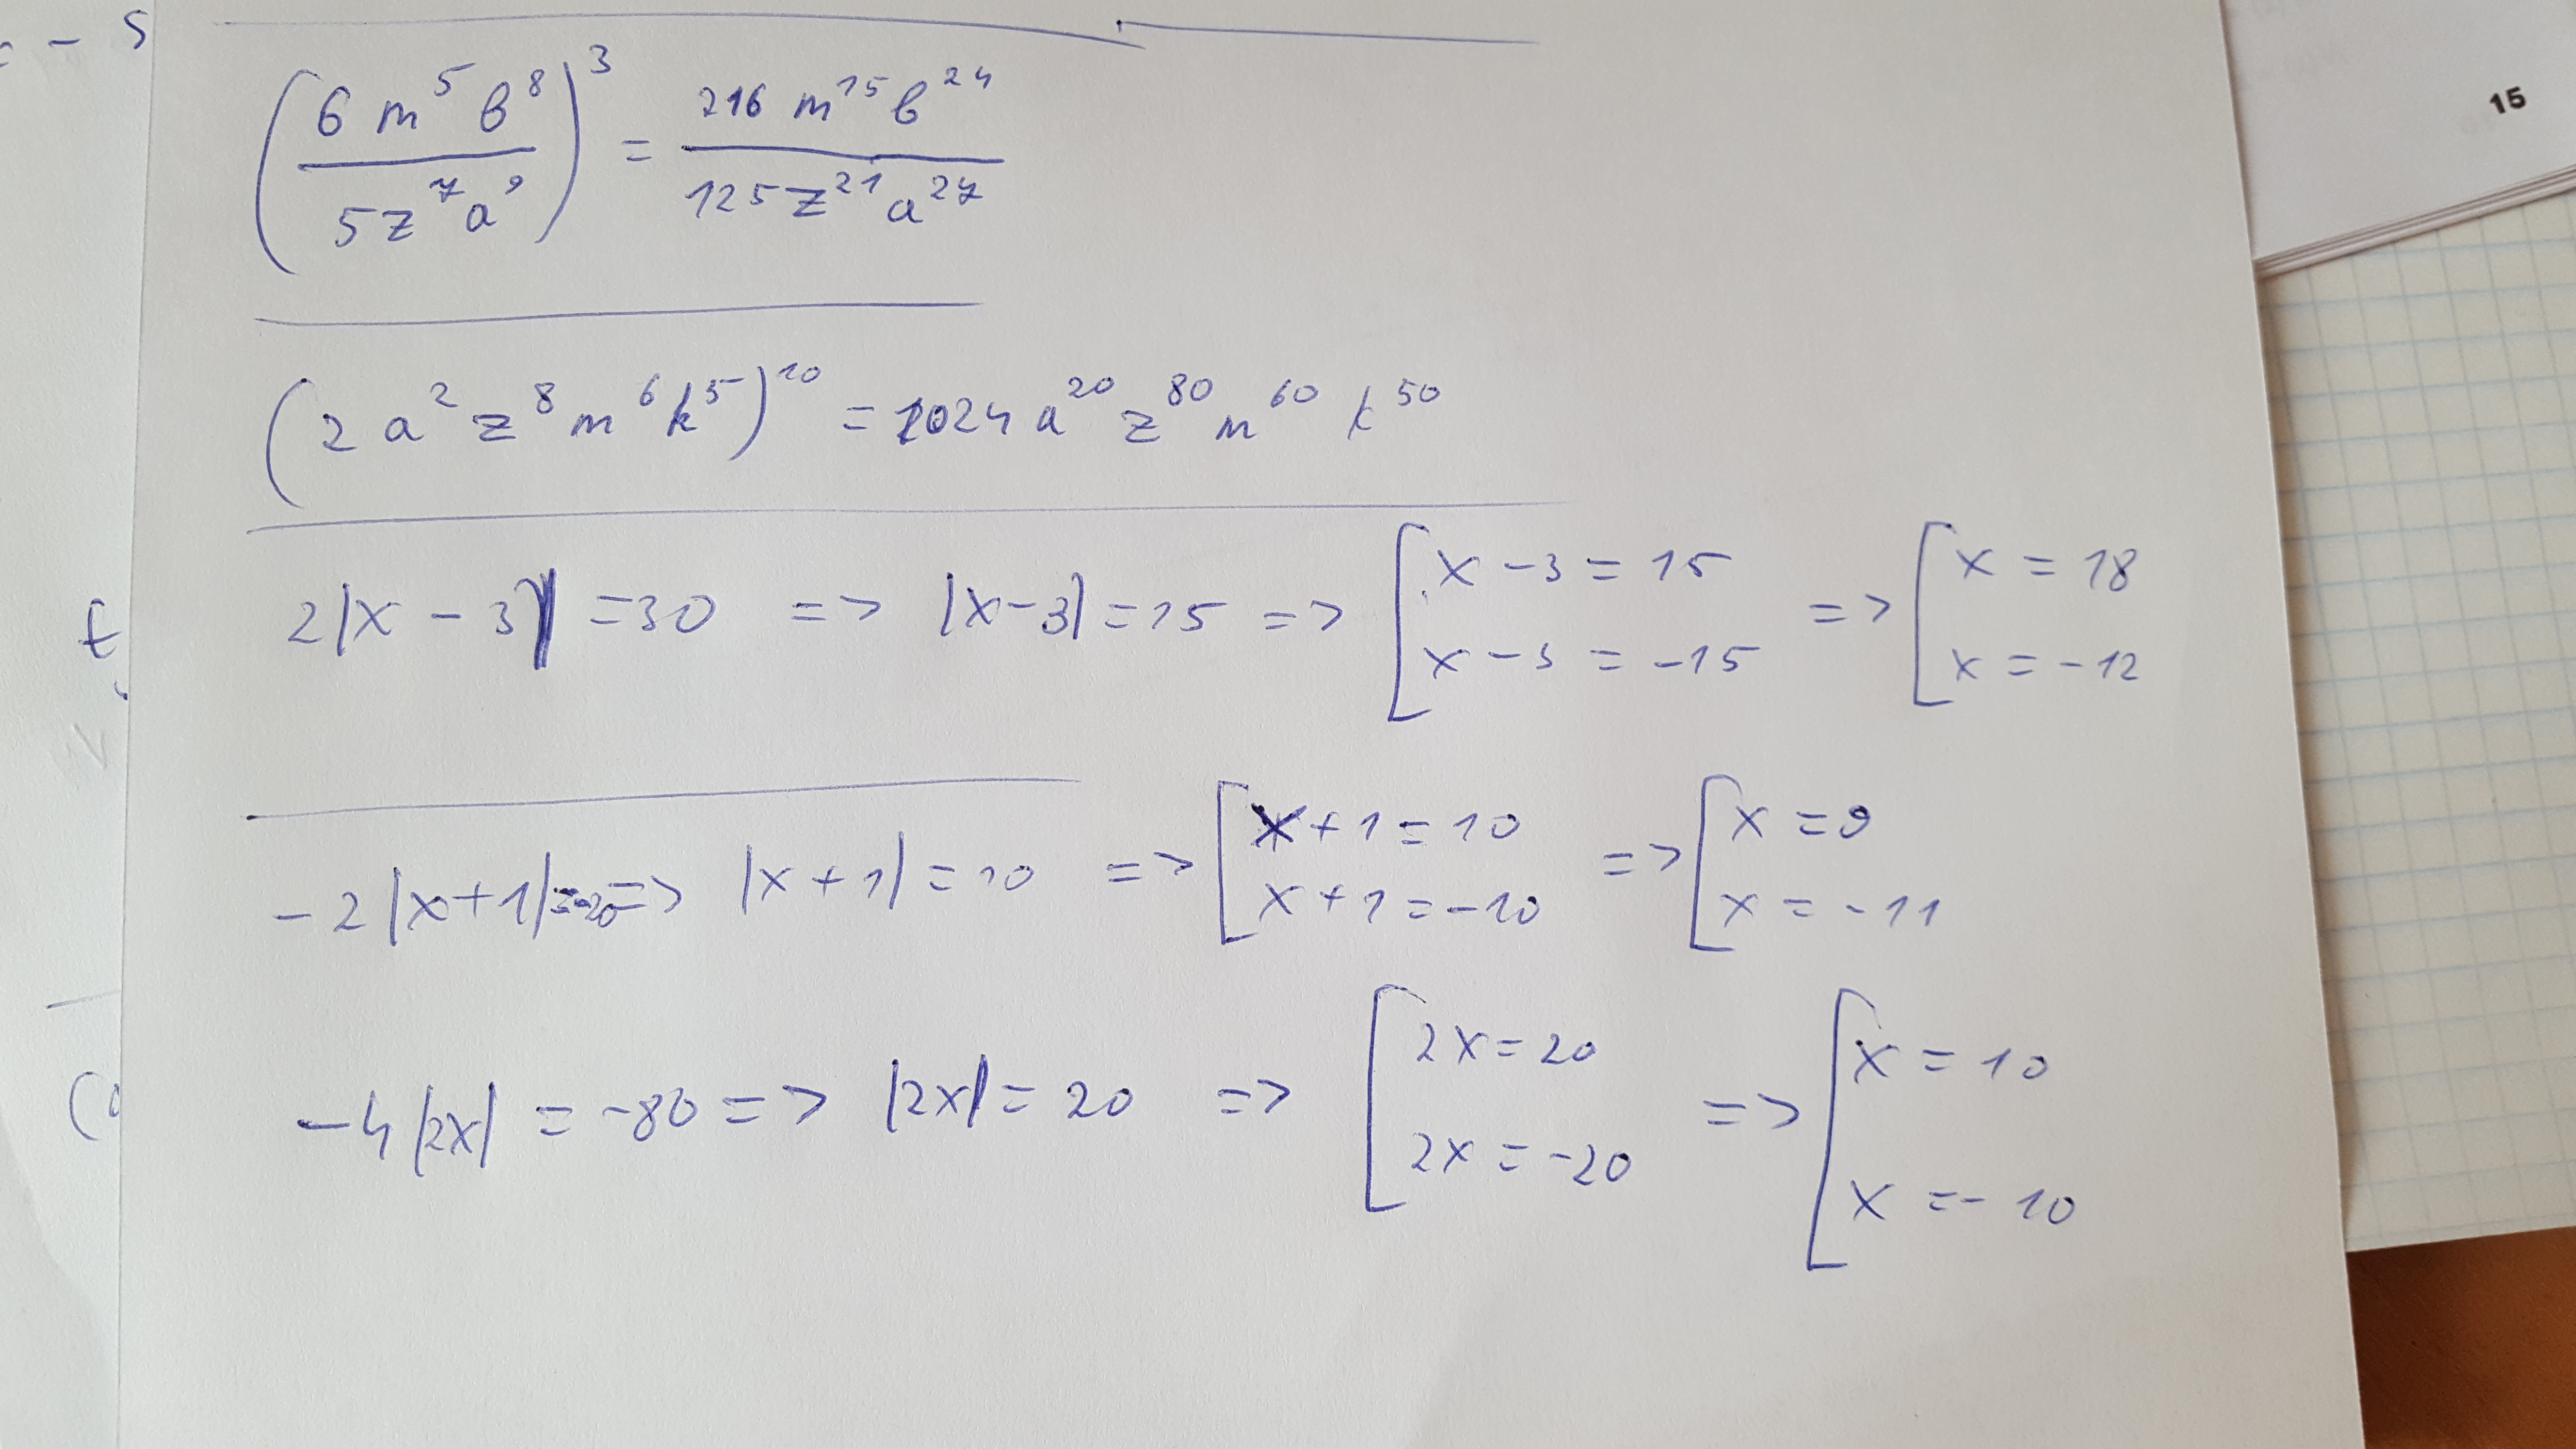 - 5
15
(6 m^5 b^8 / 5 z^7 a^9)^3 = 216 m^15 b^24 / 125 z^21 a^27
(2 a^2 z^8 m^6 k^5)^10 = 1024 a^20 z^80 m^60 k^50
2|x - 3| = 30 => |x - 3| = 15 => [ x - 3 = 15 ; x - 3 = -15 => [ x = 18 ; x = -12
-2|x + 1| = -20 => |x + 1| = 10 => [ x + 1 = 10 ; x + 1 = -10 => [ x = 9 ; x = -11
-4|2x| = -80 => |2x| = 20 => [ 2x = 20 ; 2x = -20 => [ x = 10 ; x = -10